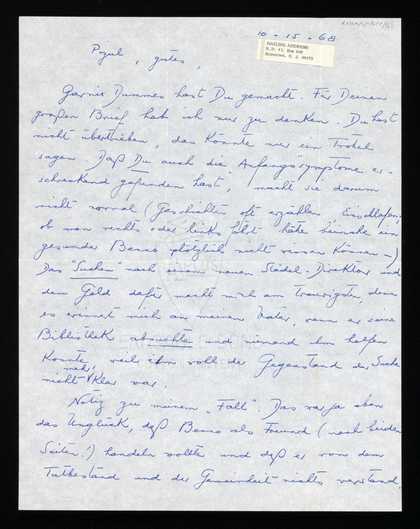 10 - 15 - 68
MAILING ADDRESS
Pogul, gutes,
Garnix Dummes hast Du gemacht. Für Deinen
großen Brief hab ich nur zu danken. Du hast
nicht übertrieben, das könnte nur ein Trottel
sagen. Daß Du auch die Anfangssymptome er-
schreckend gefunden hast, macht sie darum
nicht normal (Geschichten oft erzählen, Einschlafen,
ob man rechts oder links sitzt hätte beinahe ein
gesunder Benno plötzlich nicht wissen können -)
Das "Suchen" nach einem neuen Städel-Direktor und
dem Geld dafür macht mich am traurigsten, denn
es erinnert mich an meinen Vater, wenn er seine
Bibliothek absuchte und niemand ihm helfen
konnte, weil ihm voll der Gegenstand der Suche
nicht mehr klar war.
Notiz zu meinem "Fall". Das war ja eben
das Unglück, daß Benno als Freund (nach beiden
Seiten!) handeln wollte und daß er von dem
Tatbestand und der Gemeinheit nichts verstand,